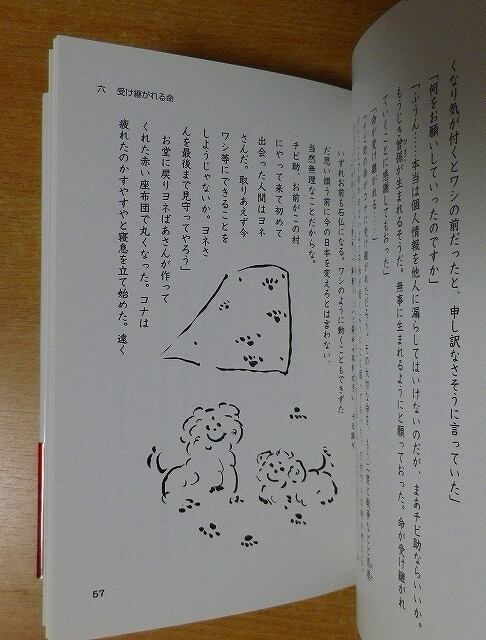 くなり気が付くとワシの前だったと、申し訳なさそうに言っていた」
「何をお願いしていったのですか」
「ふうん……本当は個人情報を他人に漏らしてはいけないのだが、まあチビ助ならいいか。
もうじき曾孫が生まれるそうだ。無事に生まれるようにと願っておった。命が受け継がれ
ていくことに感謝してもおった」
「命が受け継がれる」
六 受け継がれる命
いずれお前も石仏になる。ワシのように動くこともできずた
だ思い煩う前に今の日本を変えろとは言わない、
当然無理なことだからな。
チビ助、お前がこの村
にやって来て初めて
出会った人間はヨネ
さんだ。取りあえず今
ワシ等にできることを
しようじゃないか。ヨネさ
んを最後まで見守ってやろう」
お堂に戻りヨネばあさんが作って
くれた赤い座布団で丸くなった。コナは
疲れたのかすやすやと寝息を立て始めた。遠く
57